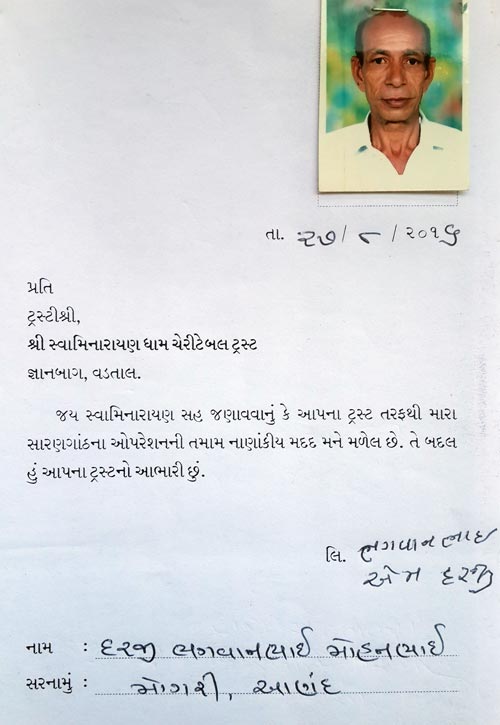 તા. ૨૭/૮/૨૦૧૬
પ્રતિ
ટ્રસ્ટીશ્રી,
શ્રી સ્વામિનારાયણ ધામ ચેરીટેબલ ટ્રસ્ટ
જ્ઞાનબાગ, વડતાલ.
જય સ્વામિનારાયણ સહ જણાવવાનું કે આપના ટ્રસ્ટ તરફથી મારા
સારણગાંઠના ઓપરેશનની તમામ નાણાંકીય મદદ મને મળેલ છે. તે બદલ
હું આપના ટ્રસ્ટનો આભારી છું.
લિ. ભગવાનભાઇ
એમ દરજી
નામ : દરજી ભગવાનભાઈ મોહનભાઈ
સરનામું : મોગરી, આણંદ